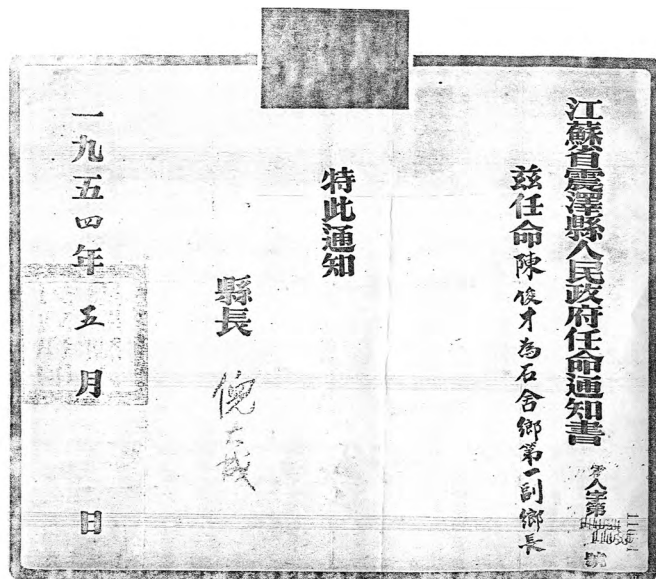 江蘇省震澤縣人民政府任命通知書
人字第 號
茲任命陳俊才為石舍鄉第一副鄉長
特此通知
縣長 倪
一九五四年五月 日